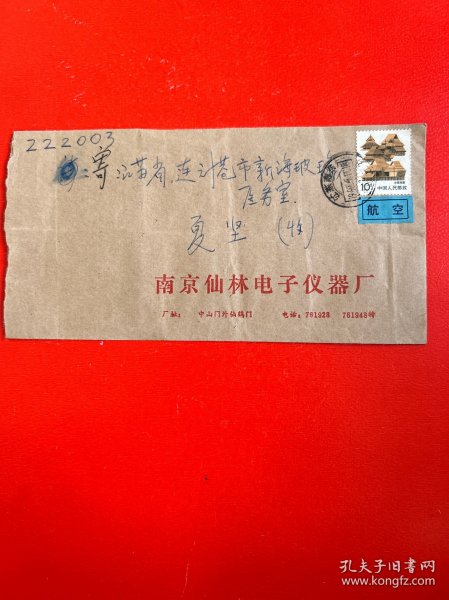 222003
寄:江苏省.连云港市新海玻璃
医务室.
夏坚(收)
10分
中国人民邮政
航空
南京仙林电子仪器厂
厂址: 中山门外仙鹤门 电话:761928 761948转
孔夫子旧书网
www.kongfz.com